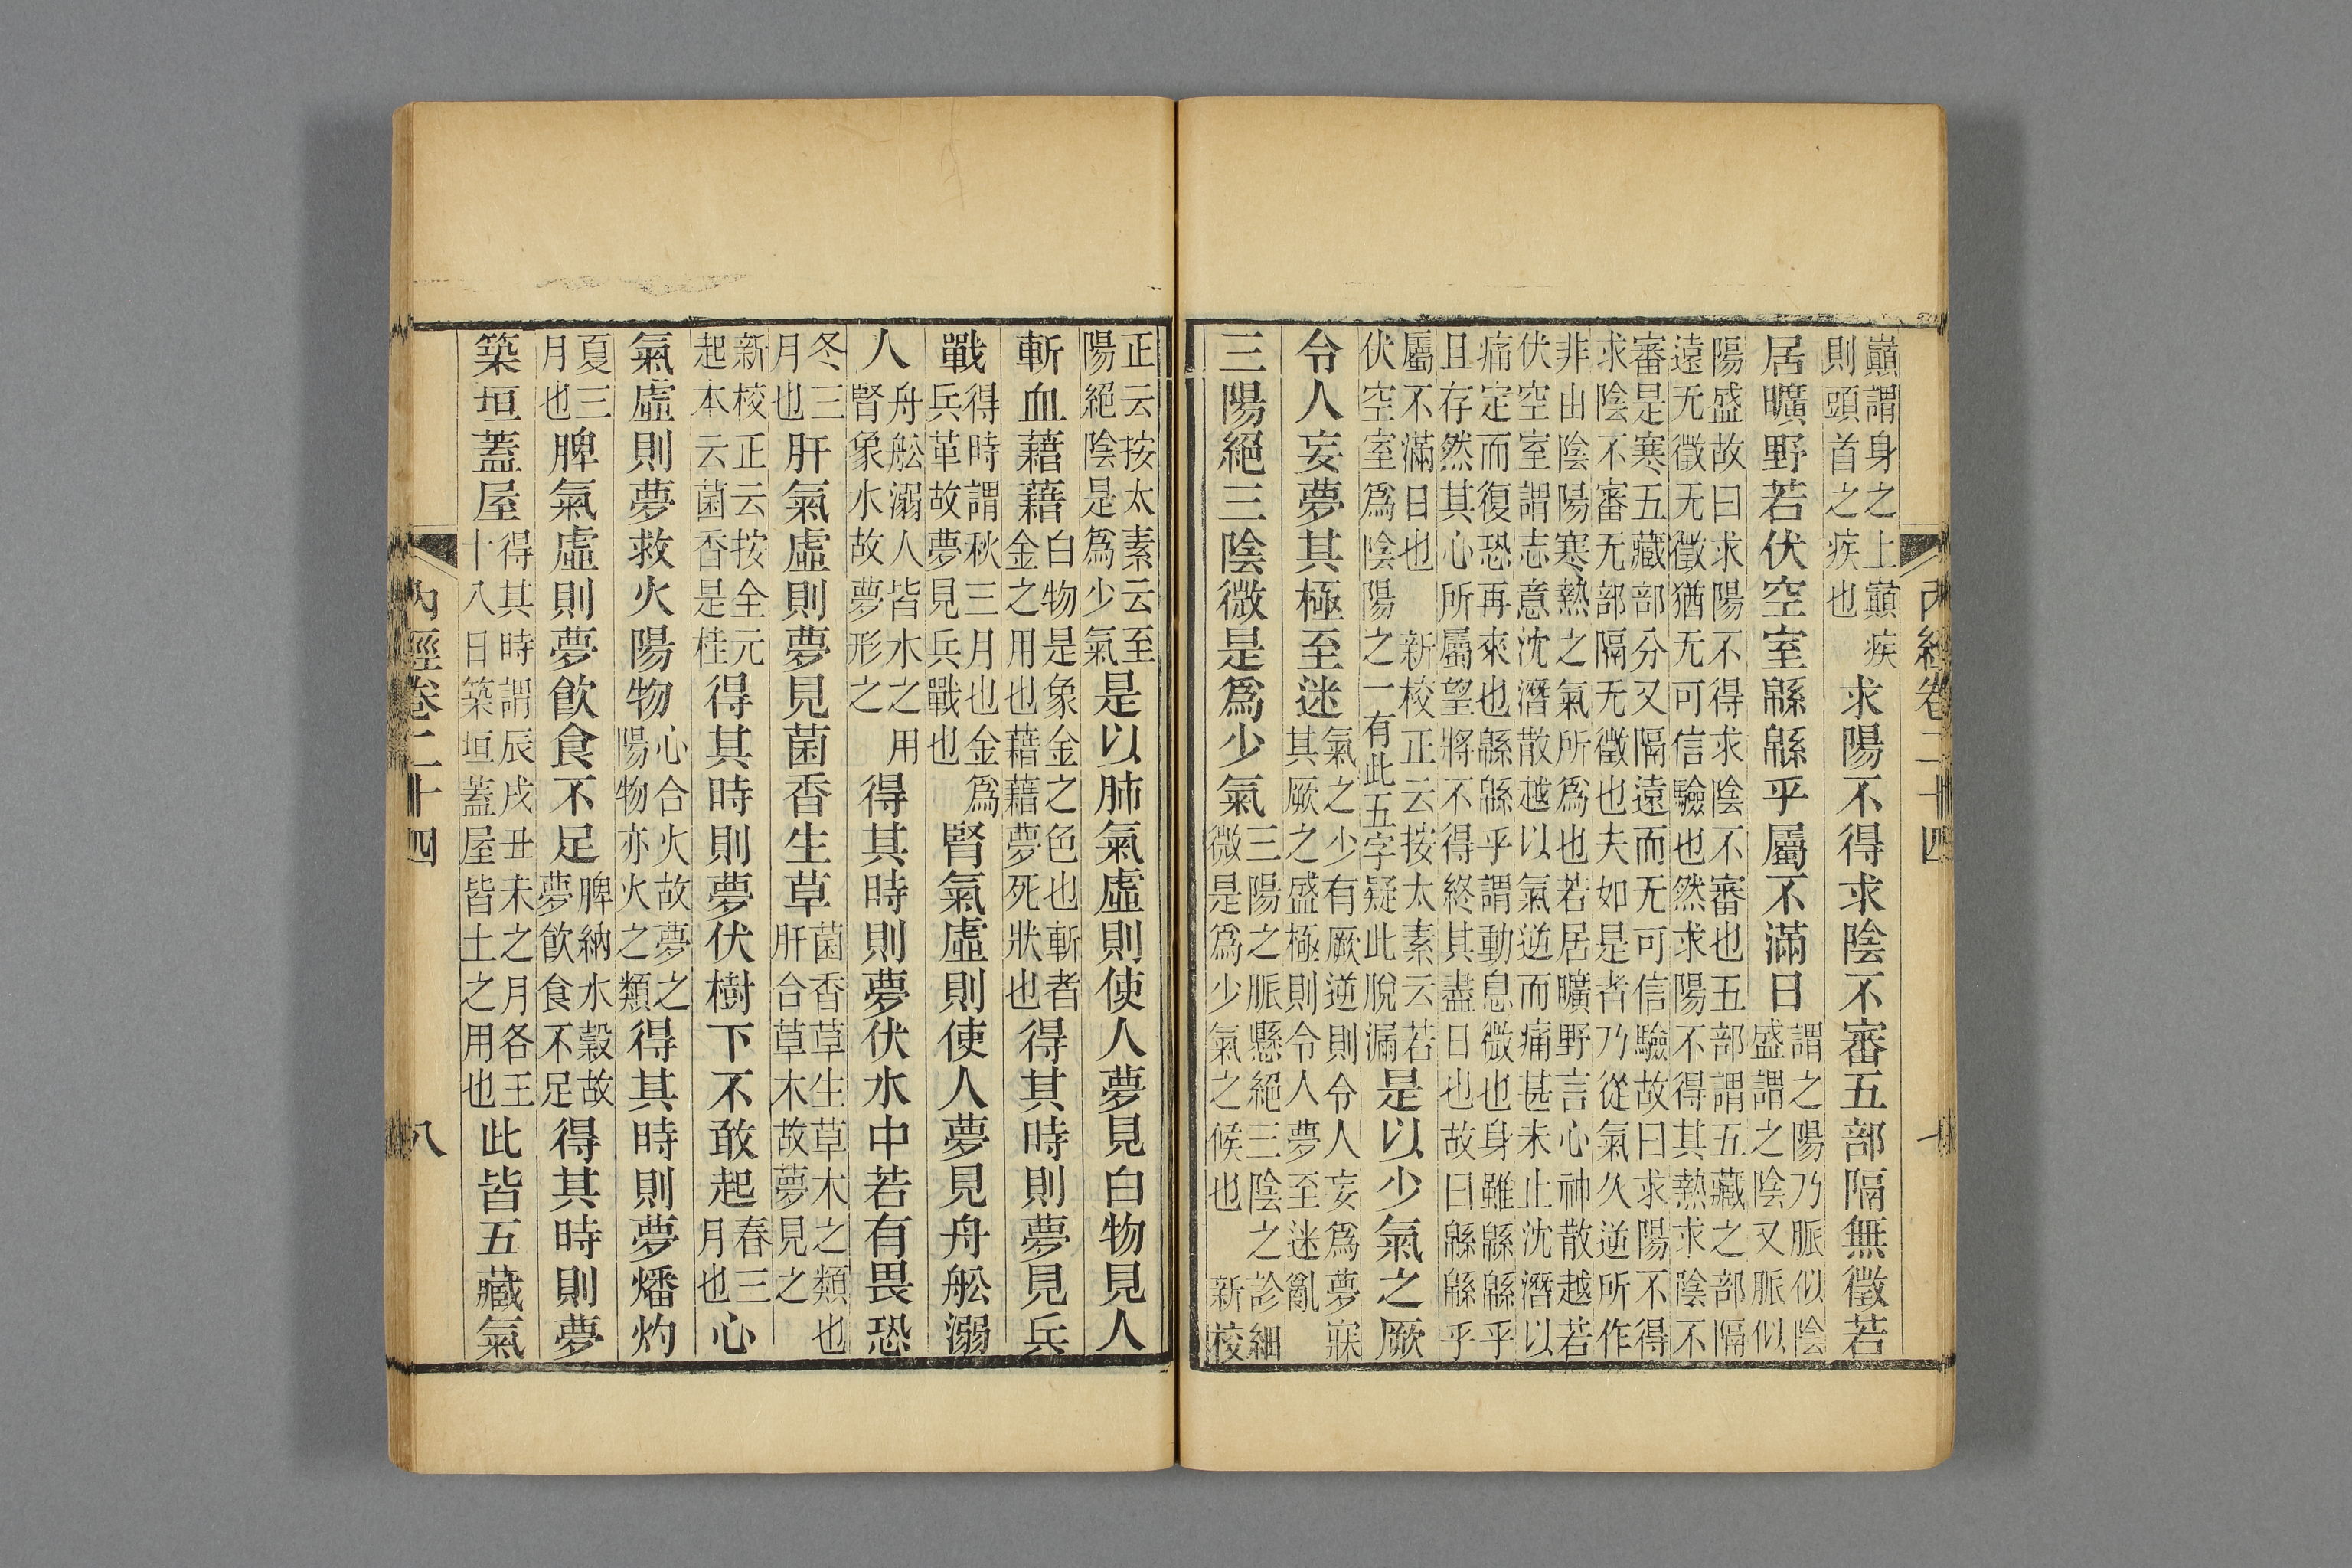 巔謂身之上巔疾則頭首之疾也求陽不得求陰不審五部隔無徵若
居曠野若伏空室緜緜乎屬不滿日謂之陽乃脈似陰盛謂之陰又脈似
陽盛故曰求陽不得求陰不審也五部謂五藏之部隔
遠无徵无徵猶无可信驗也然求陽不得其熱求陰不
審是寒五藏部分又隔遠而无可信驗故曰求陽不得
求陰不審无部隔无徵也夫如是者乃從氣久逆所作
非由陰陽寒熱之氣所爲也若居曠野言心神散越若
伏空室謂志意沈潛散越以氣逆而痛甚未止沈潛以
痛定而復恐再來也緜緜乎謂動息微也身雖緜緜乎
且存然其心所屬望將不得終其盡日也故曰緜緜乎
屬不滿日也 新校正云按太素云若伏空室爲陰陽之一有此五字疑此脫漏是以少氣之厥
令人妄夢其極至迷氣之少有厥逆則令人妄爲夢寐其厥之盛極則令人夢至迷亂
三陽絕三陰微是爲少氣三陽之脈懸絕三陰之診細微是爲少氣之候也 新校
正云按太素云至陽絕陰是爲少氣是以肺氣虛則使人夢見白物見人
斬血藉藉白物是象金之色也斬者金之用也藉藉夢死狀也得其時則夢見兵
戰得時謂秋三月也金爲兵革故夢見兵戰也腎氣虛則使人夢見舟舩溺
人舟舩溺人皆水之用腎象水故夢形之得其時則夢伏水中若有畏恐
冬三月也肝氣虛則夢見菌香生草菌香草生草木之類也肝合草木故夢見之
新校正云按全元起本云菌香是桂得其時則夢伏樹下不敢起春三月也心
氣虛則夢救火陽物心合火故夢之陽物亦火之類得其時則夢燔灼
夏三月也脾氣虛則夢飲食不足脾納水穀故夢飲食不足得其時則夢
築垣蓋屋得其時謂辰戌丑未之月各王十八日築垣蓋屋皆土之用也此皆五藏氣
内經卷二十四
八